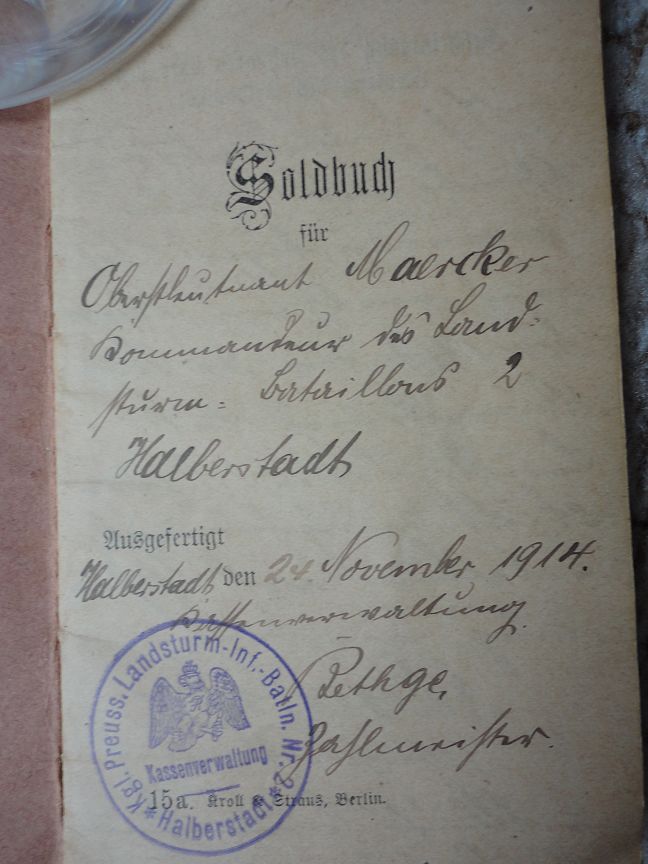 Soldbuch
für
Oberstleutnant Maercker
Kommandeur des Land-
sturm- Bataillons 2
Halberstadt
Ausgefertigt
Halberstadt den 24. November 1914.
Kassenverwaltung
Bethge,
Zahlmeister.
Kgl. Preuss. Landsturm-Inf.-Batln. Nr. 2
Kassenverwaltung
* Halberstadt *
15a. Kroll & Straus, Berlin.